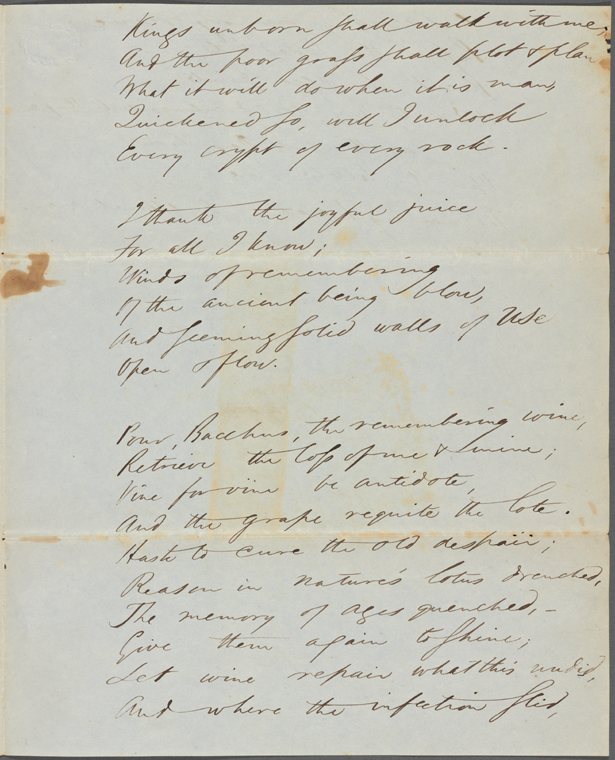 Kings unborn shall walk with me,
And the poor grass shall plot & plan
What it will do when it is man,
Quickened so, will I unlock
Every crypt of every rock.
I thank the joyful juice
For all I know;
Winds of remembering
Of the ancient being blow,
And seeming solid walls of Use
Open & flow.
Pour, Bacchus, the remembering wine,
Retrieve the loss of me & mine;
Vine for vine be antidote,
And the grape requite the lote.
Haste to cure the old despair;
Reason in nature's lotus drenched,
The memory of ages quenched,–
Give them again to shine;
Let wine repair what this undid,
And where the infection slid,